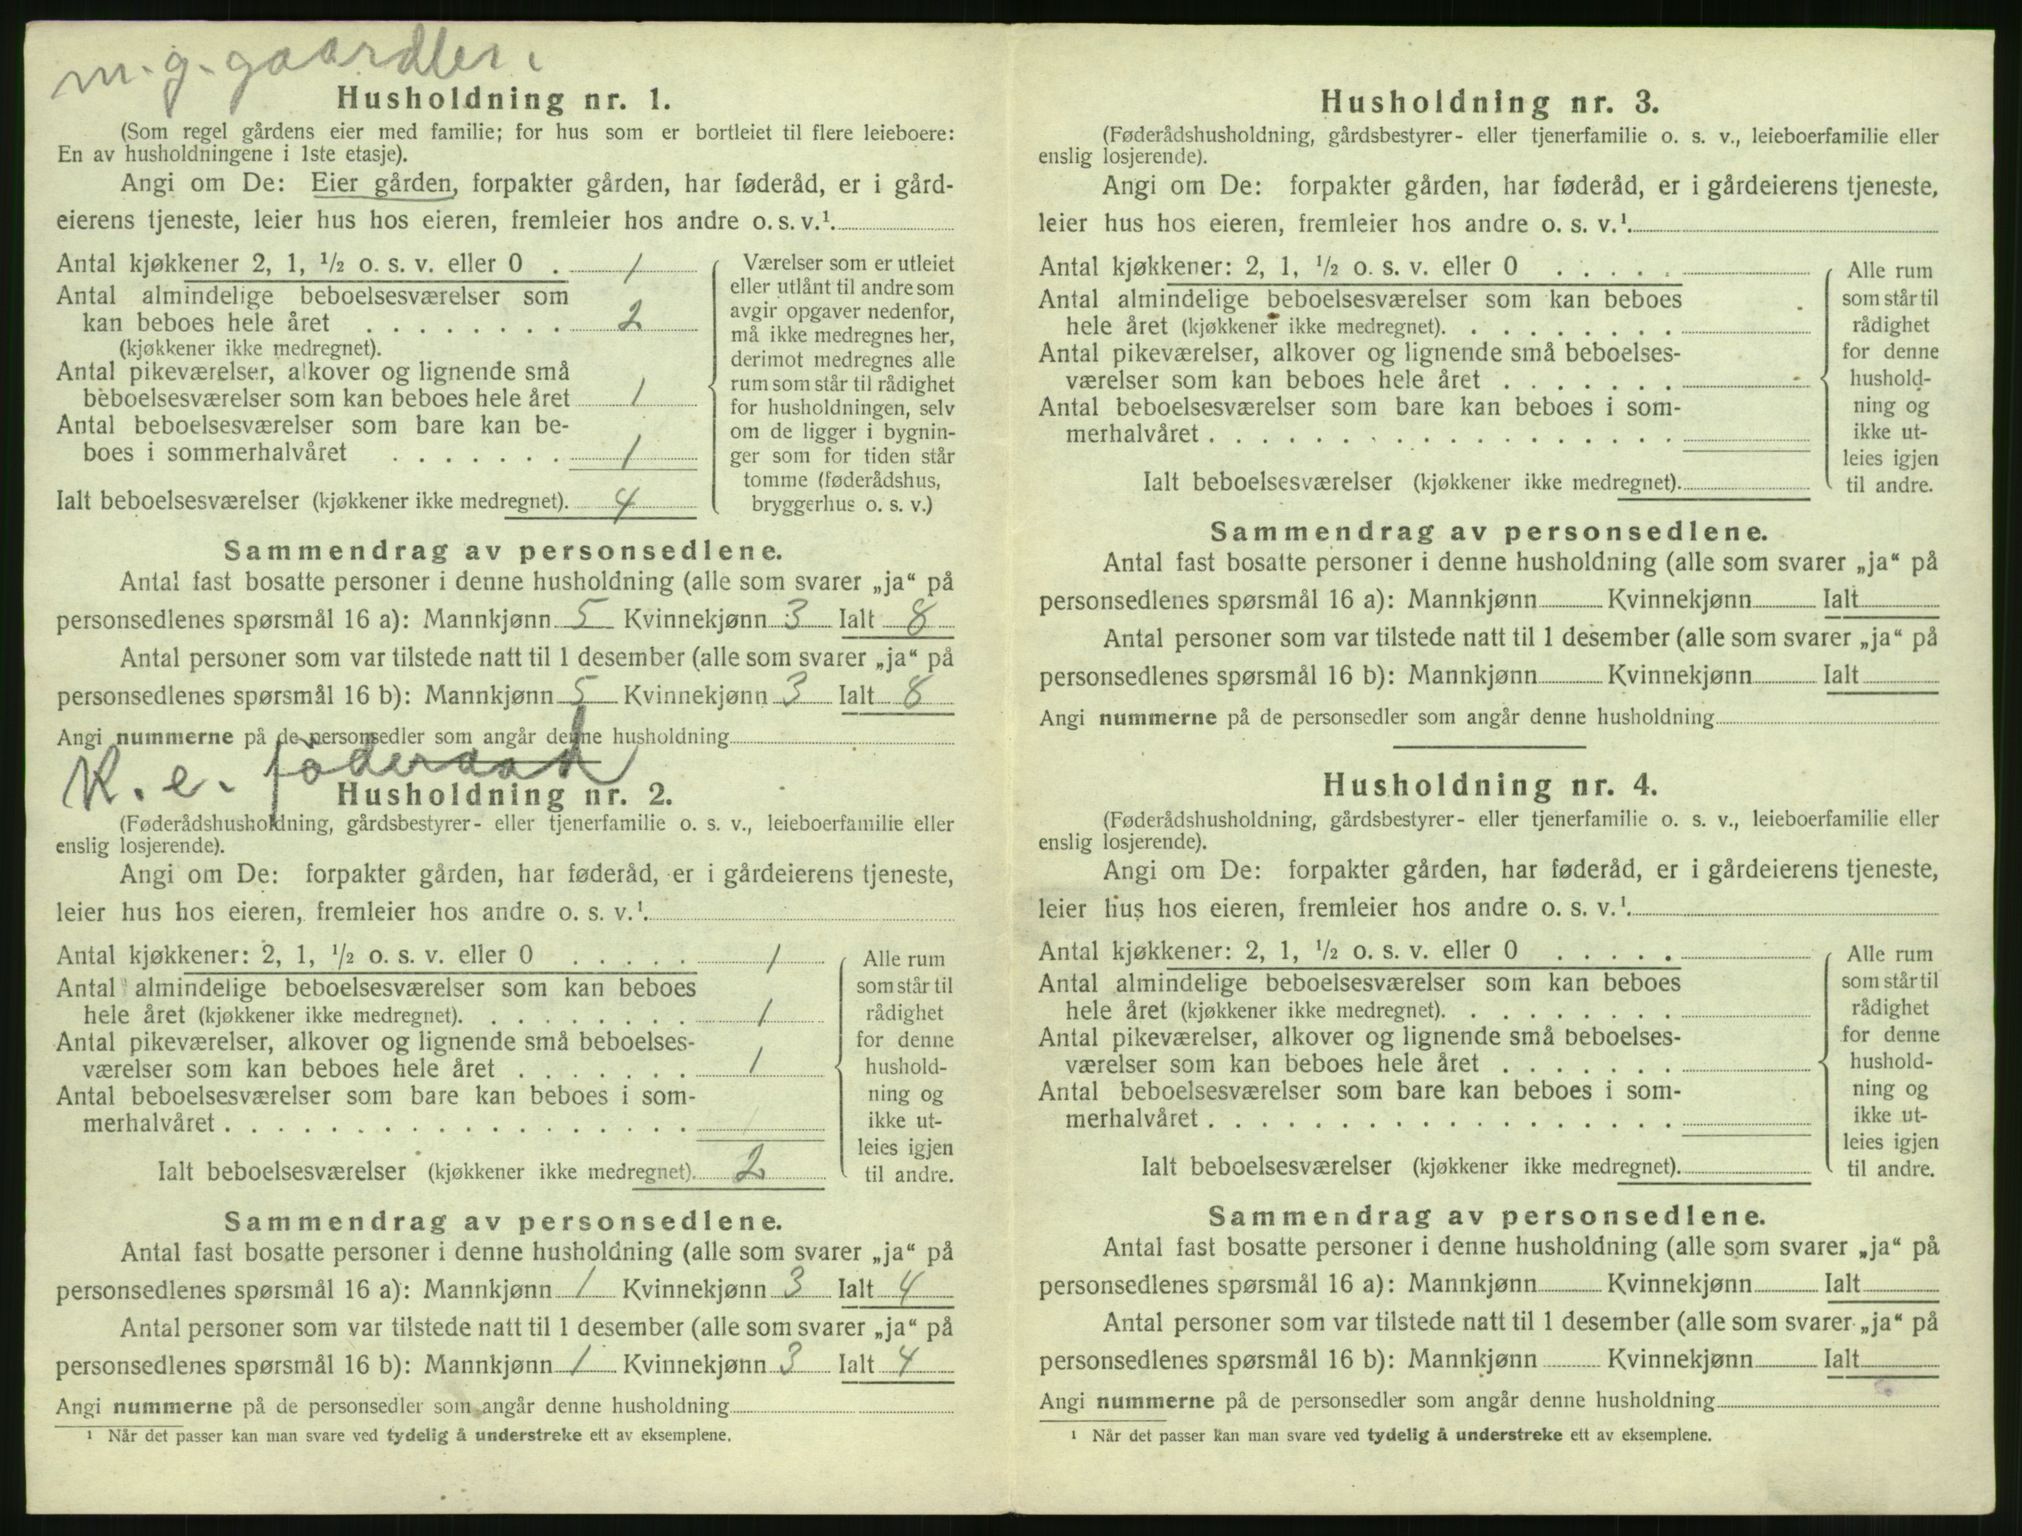 m. g. gaardbr.
Husholdning nr. 1.
(Som regel gårdens eier med familie; for hus som er bortleiet til flere leieboere:
En av husholdningene i 1ste etasje).
Angi om De: Eier gården, forpakter gården, har føderåd, er i gård-
eierens tjeneste, leier hus hos eieren, fremleier hos andre o. s. v.¹.
Antal kjøkkener 2, 1, ½ o. s. v. eller 0 . 1
Antal almindelige beboelsesværelser som
kan beboes hele året . . . . . . . . 2
(kjøkkener ikke medregnet).
Antal pikeværelser, alkover og lignende små
beboelsesværelser som kan beboes hele året 1
Antal beboelsesværelser som bare kan be-
boes i sommerhalvåret . . . . . . . 1
Ialt beboelsesværelser (kjøkkener ikke medregnet). 4
Værelser som er utleiet
eller utlånt til andre som
avgir opgaver nedenfor,
må ikke medregnes her,
derimot medregnes alle
rum som står til rådighet
for husholdningen, selv
om de ligger i bygnin-
ger som for tiden står
tomme (føderådshus,
bryggerhus o. s. v.)
Sammendrag av personsedlene.
Antal fast bosatte personer i denne husholdning (alle som svarer „ja“ på
personsedlenes spørsmål 16 a): Mannkjønn 5 Kvinnekjønn 3 Ialt 8
Antal personer som var tilstede natt til 1 desember (alle som svarer „ja“ på
personsedlenes spørsmål 16 b): Mannkjønn 5 Kvinnekjønn 3 Ialt 8
Angi nummerne på de personsedler som angår denne husholdning
K. e. föderaad
Husholdning nr. 2.
(Føderådshusholdning, gårdsbestyrer- eller tjenerfamilie o. s. v., leieboerfamilie eller
enslig losjerende).
Angi om De: forpakter gården, har føderåd, er i gårdeierens tjeneste,
leier hus hos eieren, fremleier hos andre o. s. v.¹.
Antal kjøkkener: 2, 1, ½ o. s. v. eller 0 . . . . . 1
Antal almindelige beboelsesværelser som kan beboes
hele året (kjøkkener ikke medregnet). . . . . . . . . 1
Antal pikeværelser, alkover og lignende små beboelses-
værelser som kan beboes hele året . . . . . . . 1
Antal beboelsesværelser som bare kan beboes i som-
merhalvåret . . . . . . . . . . . . . . . . . .
Ialt beboelsesværelser (kjøkkener ikke medregnet). 2
Alle rum
som står til
rådighet
for denne
hushold-
ning og
ikke ut-
leies igjen
til andre.
Sammendrag av personsedlene.
Antal fast bosatte personer i denne husholdning (alle som svarer „ja“ på
personsedlenes spørsmål 16 a): Mannkjønn 1 Kvinnekjønn 3 Ialt 4
Antal personer som var tilstede natt til 1 desember (alle som svarer „ja“ på
personsedlenes spørsmål 16 b): Mannkjønn 1 Kvinnekjønn 3 Ialt 4
Angi nummerne på de personsedler som angår denne husholdning
¹ Når det passer kan man svare ved tydelig å understreke ett av eksemplene.
Husholdning nr. 3.
(Føderådshusholdning, gårdsbestyrer- eller tjenerfamilie o. s. v., leieboerfamilie eller
enslig losjerende).
Angi om De: forpakter gården, har føderåd, er i gårdeierens tjeneste,
leier hus hos eieren, fremleier hos andre o. s. v.¹.
Antal kjøkkener: 2, 1, ½ o. s. v. eller 0 . . . . .
Antal almindelige beboelsesværelser som kan beboes
hele året (kjøkkener ikke medregnet). . . . . . . . .
Antal pikeværelser, alkover og lignende små beboelses-
værelser som kan beboes hele året . . . . . . .
Antal beboelsesværelser som bare kan beboes i som-
merhalvåret . . . . . . . . . . . . . . . . . .
Ialt beboelsesværelser (kjøkkener ikke medregnet).
Alle rum
som står til
rådighet
for denne
hushold-
ning og
ikke ut-
leies igjen
til andre.
Sammendrag av personsedlene.
Antal fast bosatte personer i denne husholdning (alle som svarer „ja“ på
personsedlenes spørsmål 16 a): Mannkjønn Kvinnekjønn Ialt
Antal personer som var tilstede natt til 1 desember (alle som svarer „ja“ på
personsedlenes spørsmål 16 b): Mannkjønn Kvinnekjønn Ialt
Angi nummerne på de personsedler som angår denne husholdning
Husholdning nr. 4.
(Føderådshusholdning, gårdsbestyrer- eller tjenerfamilie o. s. v., leieboerfamilie eller
enslig losjerende).
Angi om De: forpakter gården, har føderåd, er i gårdeierens tjeneste,
leier hus hos eieren, fremleier hos andre o. s. v.¹.
Antal kjøkkener: 2, 1, ½ o. s. v. eller 0 . . . . .
Antal almindelige beboelsesværelser som kan beboes
hele året (kjøkkener ikke medregnet). . . . . . . . .
Antal pikeværelser, alkover og lignende små beboelses-
værelser som kan beboes hele året . . . . . . .
Antal beboelsesværelser som bare kan beboes i som-
merhalvåret . . . . . . . . . . . . . . . . . .
Ialt beboelsesværelser (kjøkkener ikke medregnet).
Alle rum
som står til
rådighet
for denne
hushold-
ning og
ikke ut-
leies igjen
til andre.
Sammendrag av personsedlene.
Antal fast bosatte personer i denne husholdning (alle som svarer „ja“ på
personsedlenes spørsmål 16 a): Mannkjønn Kvinnekjønn Ialt
Antal personer som var tilstede natt til 1 desember (alle som svarer „ja“ på
personsedlenes spørsmål 16 b): Mannkjønn Kvinnekjønn Ialt
Angi nummerne på de personsedler som angår denne husholdning
¹ Når det passer kan man svare ved tydelig å understreke ett av eksemplene.